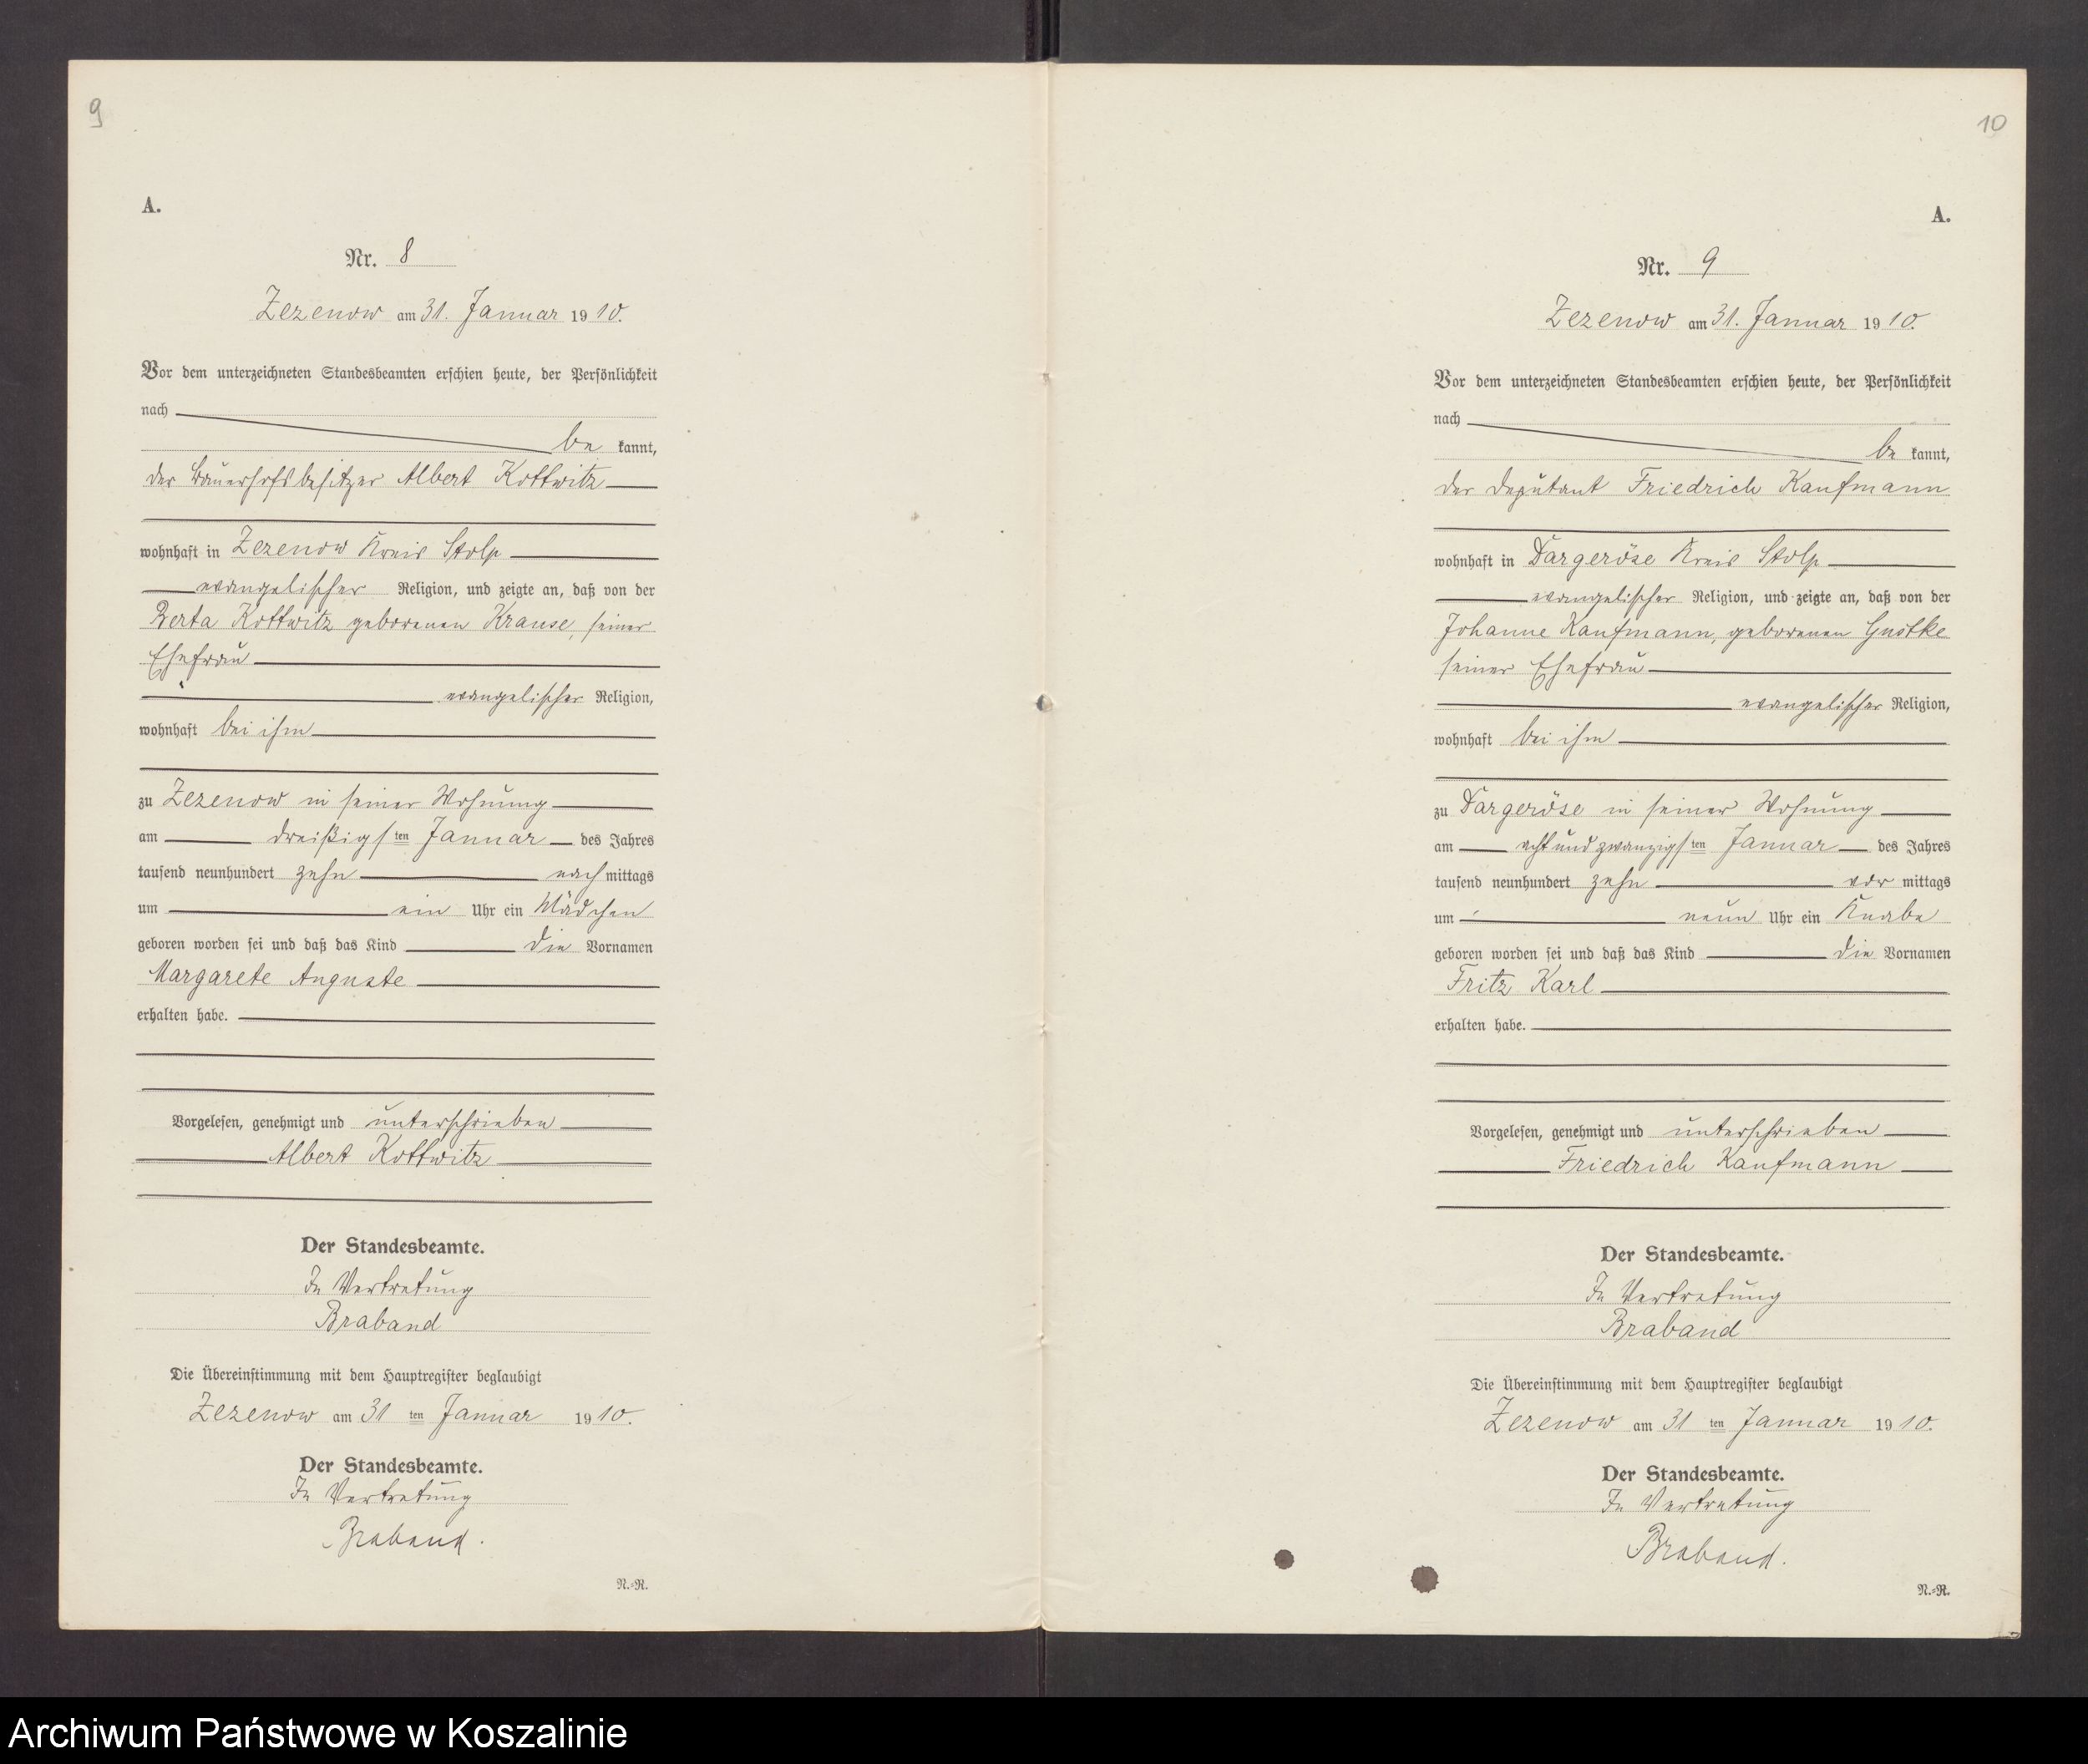 9
A.
Nr. 8
Zezenow am 31. Januar 1910.
Vor dem unterzeichneten Standesbeamten erschien heute, der Persönlichkeit
nach
be kannt,
der Bauerhofsbesitzer Albert Kottwitz
wohnhaft in Zezenow Kreis Stolp
evangelischer Religion, und zeigte an, daß von der
Berta Kottwitz geborenen Krause, seiner
Ehefrau
evangelischer Religion,
wohnhaft bei ihm
zu Zezenow in seiner Wohnung
am dreißigsten Januar des Jahres
tausend neunhundert zehn nach mittags
um ein Uhr ein Mädchen
geboren worden sei und daß das Kind die Vornamen
Margarete Auguste
erhalten habe.
Vorgelesen, genehmigt und unterschrieben
Albert Kottwitz
Der Standesbeamte.
In Vertretung
Braband
Die Übereinstimmung mit dem Hauptregister beglaubigt
Zezenow am 31 ten Januar 1910.
Der Standesbeamte.
In Vertretung
Braband.
N.=R.
10
A.
Nr. 9
Zezenow am 31. Januar 1910.
Vor dem unterzeichneten Standesbeamten erschien heute, der Persönlichkeit
nach
be kannt,
der Deputant Friedrich Kaufmann
wohnhaft in Dargeröse Kreis Stolp
evangelischer Religion, und zeigte an, daß von der
Johanne Kaufmann, geborenen Gustke
seiner Ehefrau
evangelischer Religion,
wohnhaft bei ihm
zu Dargeröse in seiner Wohnung
am acht und zwanzigsten Januar des Jahres
tausend neunhundert zehn vor mittags
um neun Uhr ein Knabe
geboren worden sei und daß das Kind die Vornamen
Fritz Karl
erhalten habe.
Vorgelesen, genehmigt und unterschrieben
Friedrich Kaufmann
Der Standesbeamte.
In Vertretung
Braband
Die Übereinstimmung mit dem Hauptregister beglaubigt
Zezenow am 31 ten Januar 1910.
Der Standesbeamte.
In Vertretung
Braband.
N.=R.
Archiwum Państwowe w Koszalinie